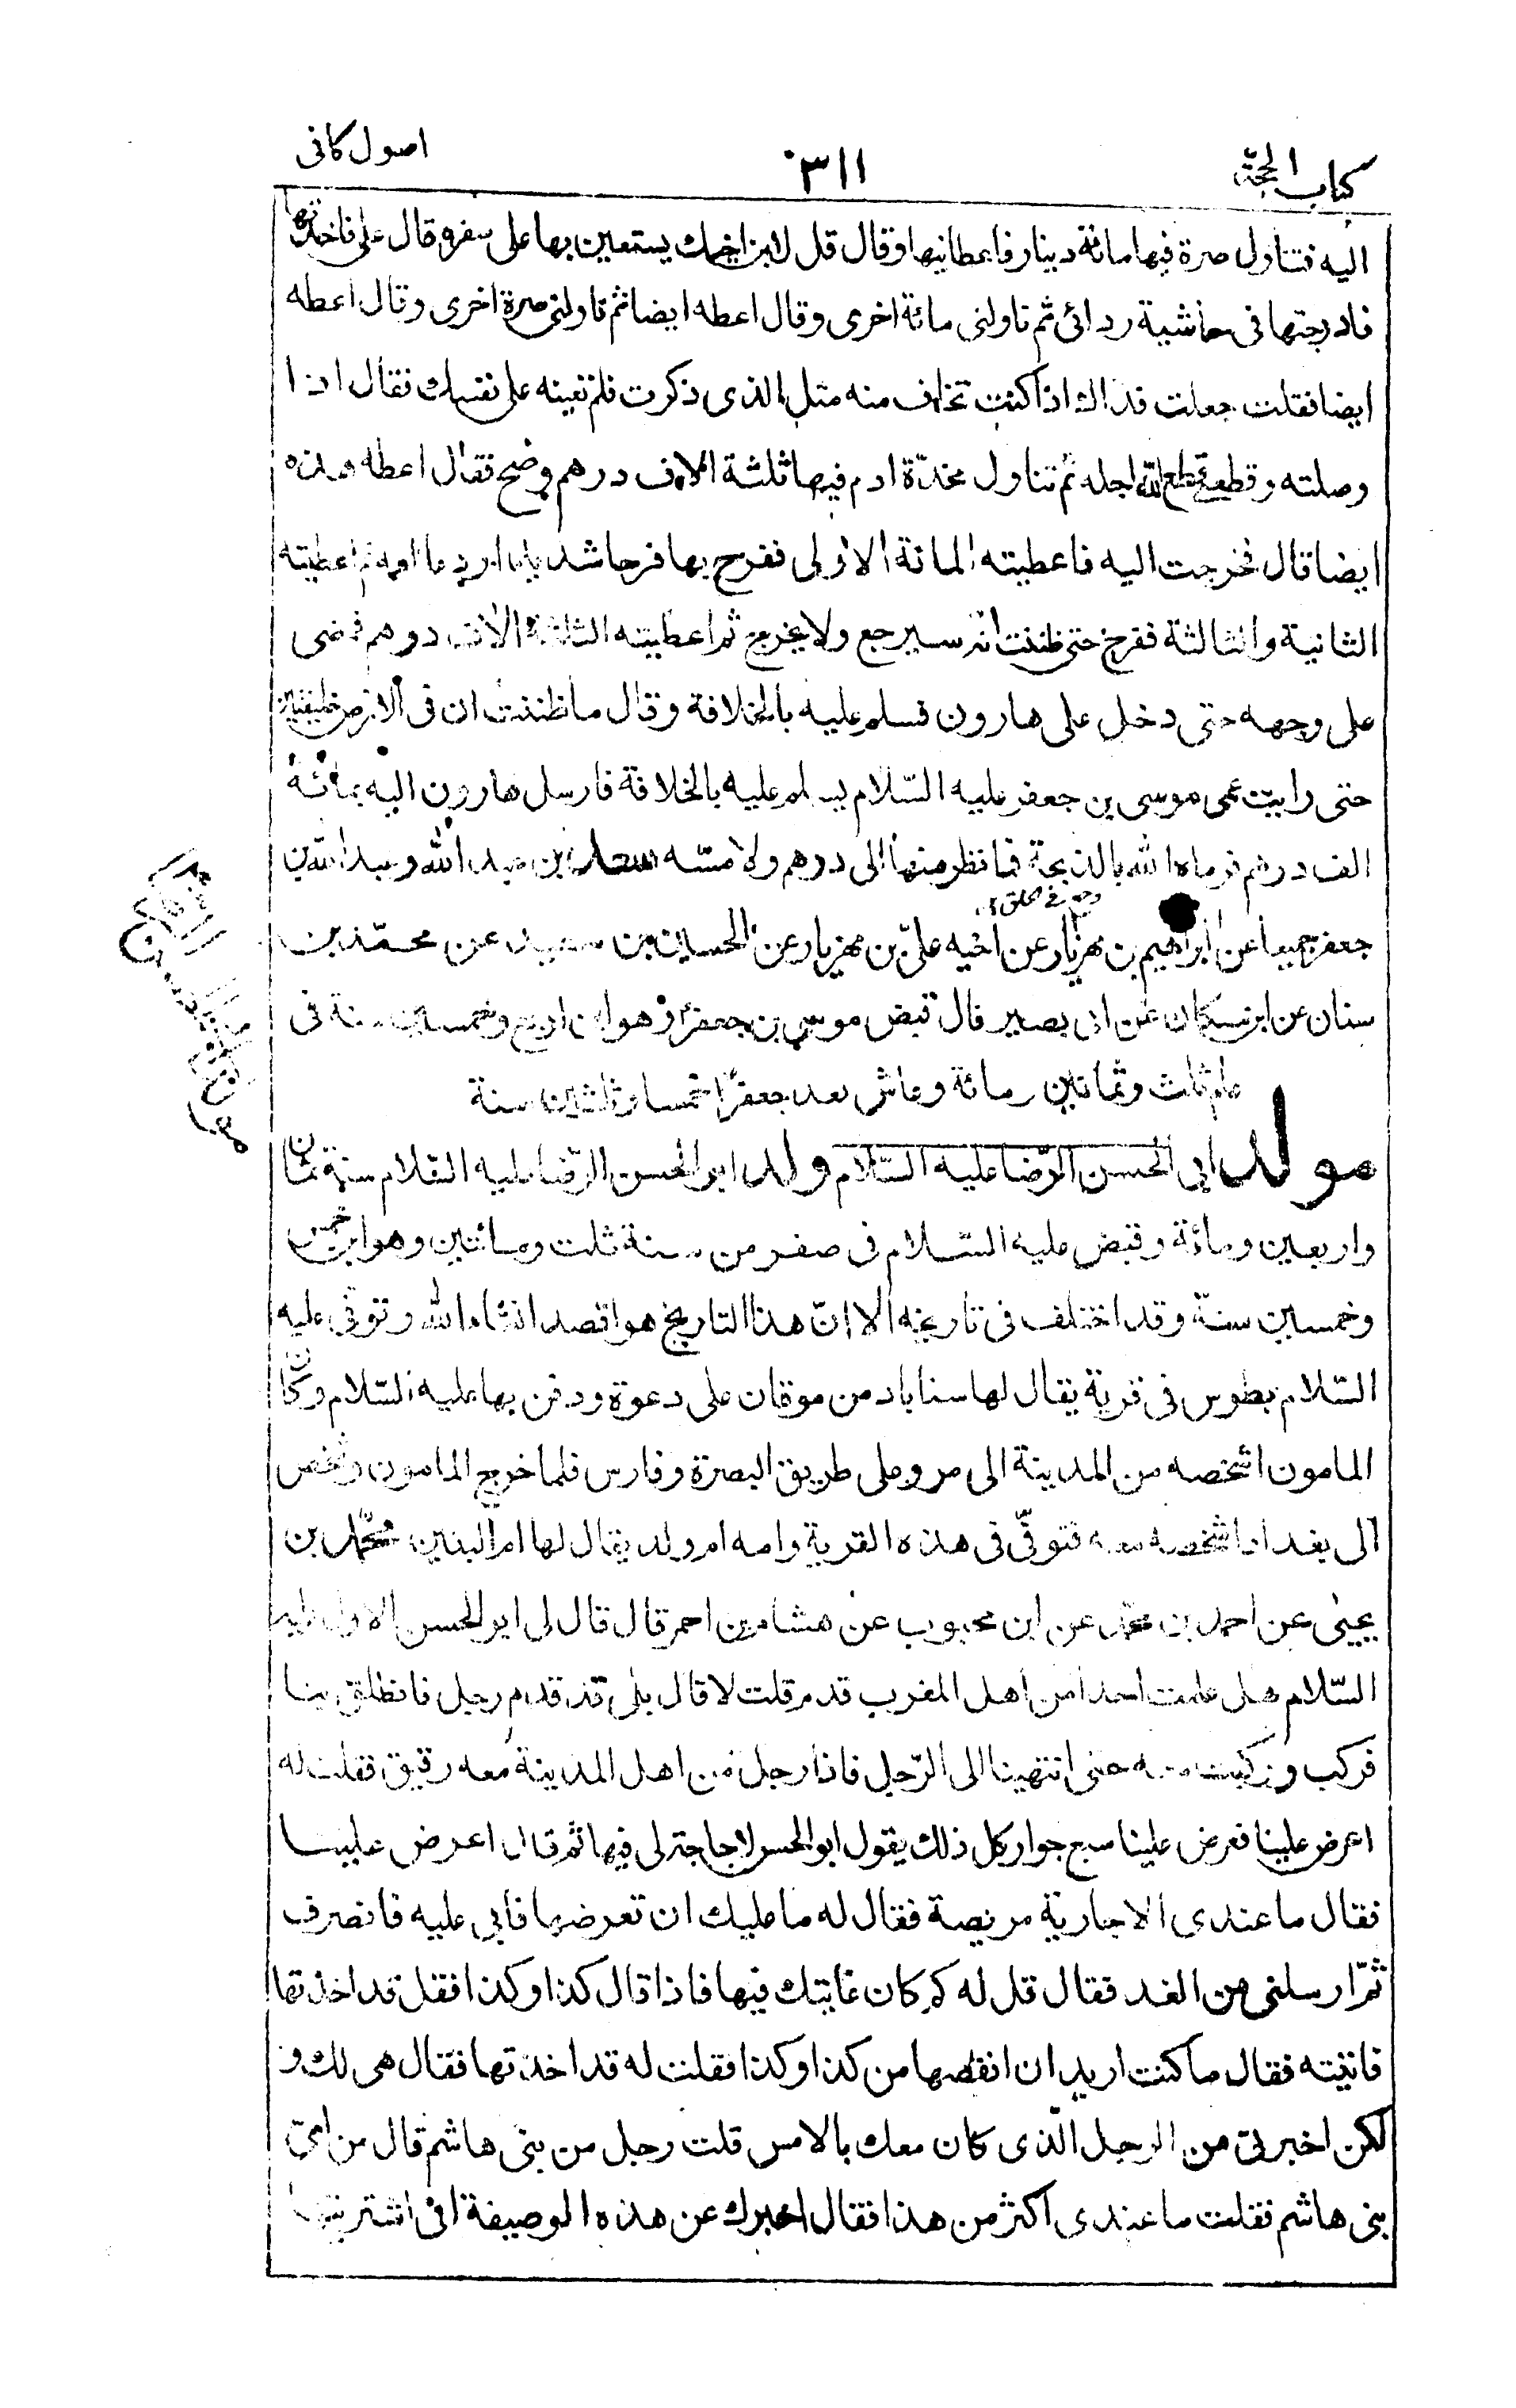 كتاب الحجّة
٣١١
اصول كافى
اليه فتناول صرة فيها مائة دينار فاعطانيها وقال قل لابن اخيك يستعين بها على سفره قال على فاخذتها
فادرجتها فى حاشية ردائى ثم ناولنى مائة اخرى وقال اعطه ايضا ثم ناولنى صرة اخرى وقال اعطه
ايضا فقلت جعلت فداك اذا كنت تخاف منه مثل الذى ذكرت فلم تعينه على نفسك فقال اذا
وصلته وقطعنى قطع الله اجله ثم تناول مخدّة ادم فيها ثلثة الاف درهم وضح فقال اعطه هذه
ايضا قال فخرجت اليه فاعطيته المائة الاولى ففرح بها فرحا شديدا ثم اعطيته
الثانية والثالثة ففرح حتى ظننت انه سيرجع ولا يخرج ثم اعطيته الثلثة الاف درهم فمضى
على وجهه حتى دخل على هارون فسلم عليه بالخلافة وقال ما ظننت ان فى الارض خليفتين
حتى رايت عمى موسى بن جعفر عليه السّلام يسلم عليه بالخلافة فارسل هارون اليه بمائة
الف درهم فرماه الله بالذبحة فما نظر منها الى درهم ولا مسّه سعد بن عبد الله وعبد الله بن
وجع فى الحلق
جعفر جميعا عن ابراهيم بن مهزيار عن اخيه علىّ بن مهزيار عن الحسين بن سعيد عن محمّد بن
سنان عن ابن مسكان عن ابى بصير قال قبض موسى بن جعفر وهو ابن اربع وخمسين سنة فى
عام ثلث وثمانين ومائة وعاش بعد جعفر خمسا وثلثين سنة
مولد ابى الحسن الرّضا عليه السّلام ولد ابو الحسن الرّضا عليه السّلام سنة ثمان
واربعين ومائة وقبض عليه السّلام فى صفر من سنة ثلث ومائتين وهو ابن خمس
وخمسين سنة وقد اختلف فى تاريخه الا انّ هذا التاريخ هو اقصد انشاء الله وتوفّى عليه
السّلام بطوس فى قرية يقال لها سناباد من موقان على دعوة ودفن بها عليه السّلام وكان
المامون اشخصه من المدينة الى مرو على طريق البصرة وفارس فلما خرج المامون وشخص
الى بغداد اشخصه معه فتوفّى فى هذه القرية وامه ام ولد يقال لها ام البنين محمّد بن
يحيى عن احمد بن محمّد عن ابن محبوب عن هشام بن احمر قال قال لى ابو الحسن الاول عليه
السّلام هل علمت احدا من اهل المغرب قدم قلت لا قال بلى قد قدم رجل فانطلق بنا
فركب وركبت معه حتى انتهينا الى الرّجل فاذا رجل من اهل المدينة معه رقيق فقلت له
اعرض علينا فعرض علينا سبع جوار كل ذلك يقول ابو الحسن لا حاجة لى فيها ثم قال اعرض علينا
فقال ما عندى الا جارية مريضة فقال له ما عليك ان تعرضها فابى عليه فانصرف
ثمّ ارسلنى من الغد فقال قل له كم كان غايتك فيها فاذا قال كذا وكذا فقل قد اخذتها
فاتيته فقال ما كنت اريد ان انقصها من كذا وكذا فقلت له قد اخذتها فقال هى لك و
لكن اخبرنى من الرجل الّذى كان معك بالامس قلت رجل من بنى هاشم قال من اىّ
بنى هاشم فقلت ما عندى اكثر من هذا فقال اخبرك عن هذه الوصيفة انى اشتريتها